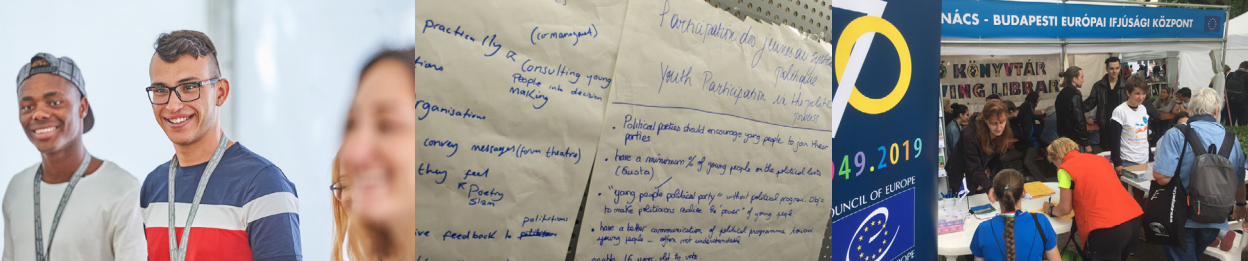 (co-managent)
practice (by a consulting young
People into decision
making)
tions
rganisations
convey messages (forum theatre)
they feel
Poetry
Slam
politicians
ive feedback to
Participation des jeunes au
politique
Youth Participation in the politic
process
• Political parties should encourage yang people to join their
parties
• have a minimum % of young people on the political lists
(Quota)
• "young people political party" without political program. Obj:
to make politicians realise the "power" of young people
• have a better communication of political programme toward
young people - often not understandable
enable 16 year old to vote
949.2019
OUNCIL OF EUROPE
NÁCS - BUDAPESTI EURÓPAI IFJÚSÁGI KÖZPONT
KÖNYVTÁR
ING LIBRAR